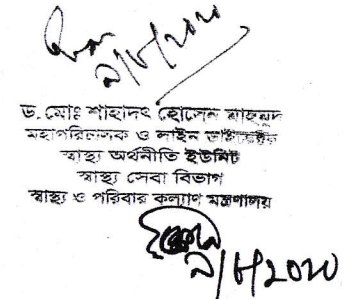 ৯/৮/২০২০
ড. মোঃ শাহাদৎ হোসেন মাহমুদ
মহাপরিচালক ও লাইন ডাইরেক্টর
স্বাস্থ্য অর্থনীতি ইউনিট
স্বাস্থ্য সেবা বিভাগ
স্বাস্থ্য ও পরিবার কল্যাণ মন্ত্রণালয়
৯/৮/২০২০